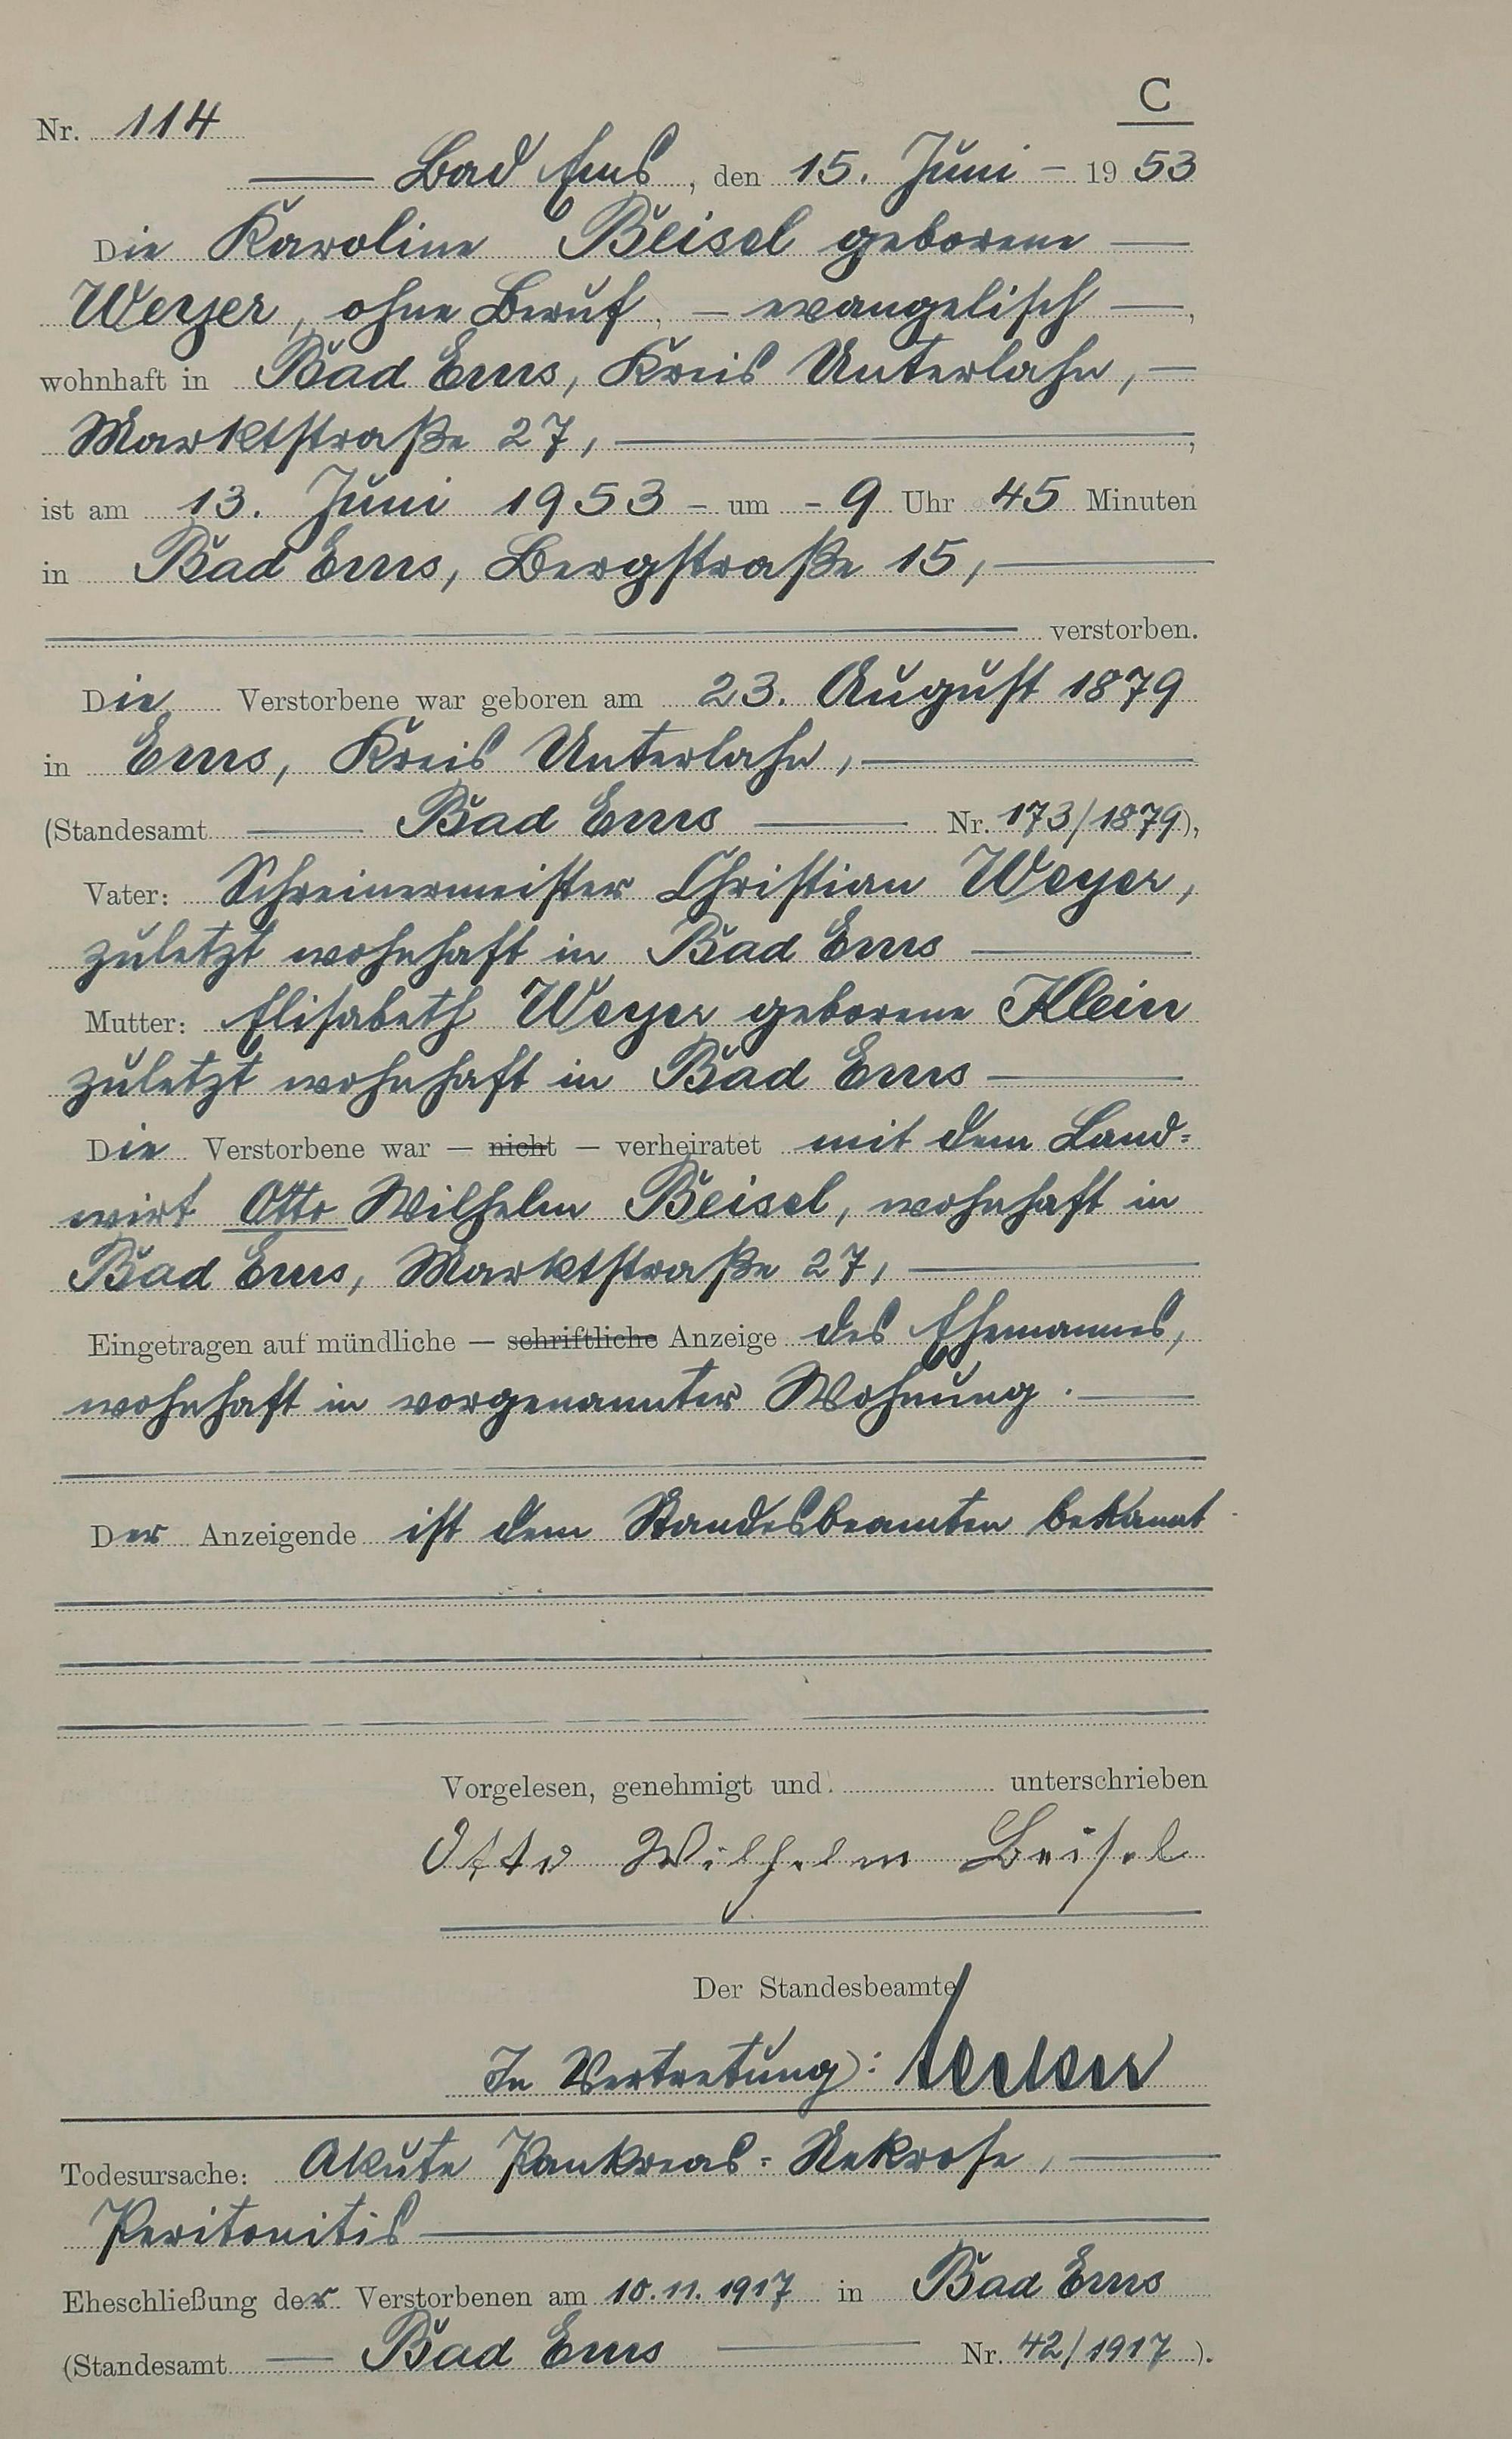 C
Nr. 114
Bad Ems, den 15. Juni - 1953
Die Karoline Beisel geborene
Weyer, ohne Beruf, - evangelisch,
wohnhaft in Bad Ems, Kreis Unterlahn,
Marktstraße 27, ,
ist am 13. Juni 1953 - um - 9 Uhr 45 Minuten
in Bad Ems, Bergstraße 15,
verstorben.
Die Verstorbene war geboren am 23. August 1879
in Ems, Kreis Unterlahn,
(Standesamt Bad Ems Nr. 173/1879),
Vater: Schreinermeister Christian Weyer,
zuletzt wohnhaft in Bad Ems
Mutter: Elisabeth Weyer geborene Klein
zuletzt wohnhaft in Bad Ems
Die Verstorbene war — nicht — verheiratet mit dem Land=
wirt Otto Wilhelm Beisel, wohnhaft in
Bad Ems, Marktstraße 27,
Eingetragen auf mündliche — schriftliche Anzeige des Ehemannes,
wohnhaft in vorgenannter Wohnung.
Der Anzeigende ist dem Standesbeamten bekannt
Vorgelesen, genehmigt und unterschrieben
Otto Wilhelm Beisel
Der Standesbeamte
In Vertretung:
Todesursache: Akute Pankreas=Nekrose,
Peritonitis
Eheschließung der Verstorbenen am 10.11.1917 in Bad Ems
(Standesamt Bad Ems Nr. 42/1917).